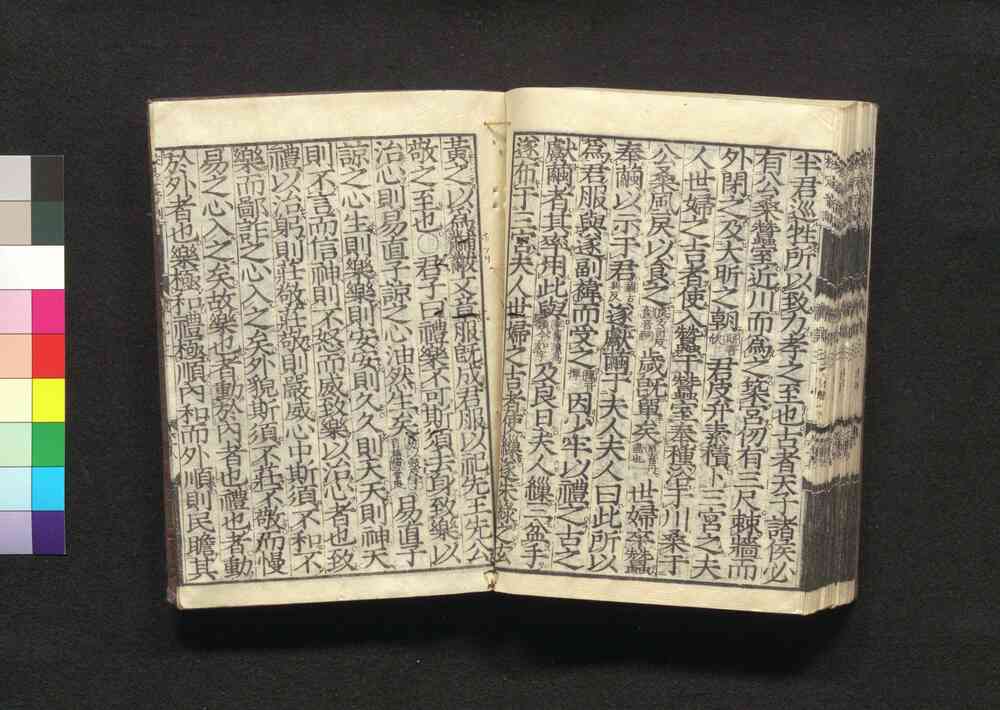 半君巡牲所以致力孝之至也古者天子諸侯必
有公桑蠶室近川而為之築宮仞有三尺棘牆而
外閉之及大昕之朝君皮弁素積卜三宮之夫
人世婦之吉者使入蠶于蠶室奉種浴于川桑于
公桑風戾以食之歲旣單矣世婦卒蠶
奉繭以示于君遂獻繭于夫人夫人曰此所以
為君服與遂副褘而受之因少牢以禮之古之
獻繭者其率用此與及良日夫人繅三盆手
遂布于三宮夫人世婦之吉者使繅遂朱綠之玄
黃之以為黼黻文章服旣成君服以祀先王先公
敬之至也○君子曰禮樂不可斯須去身致樂以
治心則易直子諒之心油然生矣易直子
諒之心生則樂樂則安安則久久則天天則神天
則不言而信神則不怒而威致樂以治心者也致
禮以治躬則莊敬莊敬則嚴威心中斯須不和不
樂而鄙詐之心入之矣外貌斯須不莊不敬而慢
易之心入之矣故樂也者動於內者也禮也者動
於外者也樂極和禮極順內和而外順則民瞻其